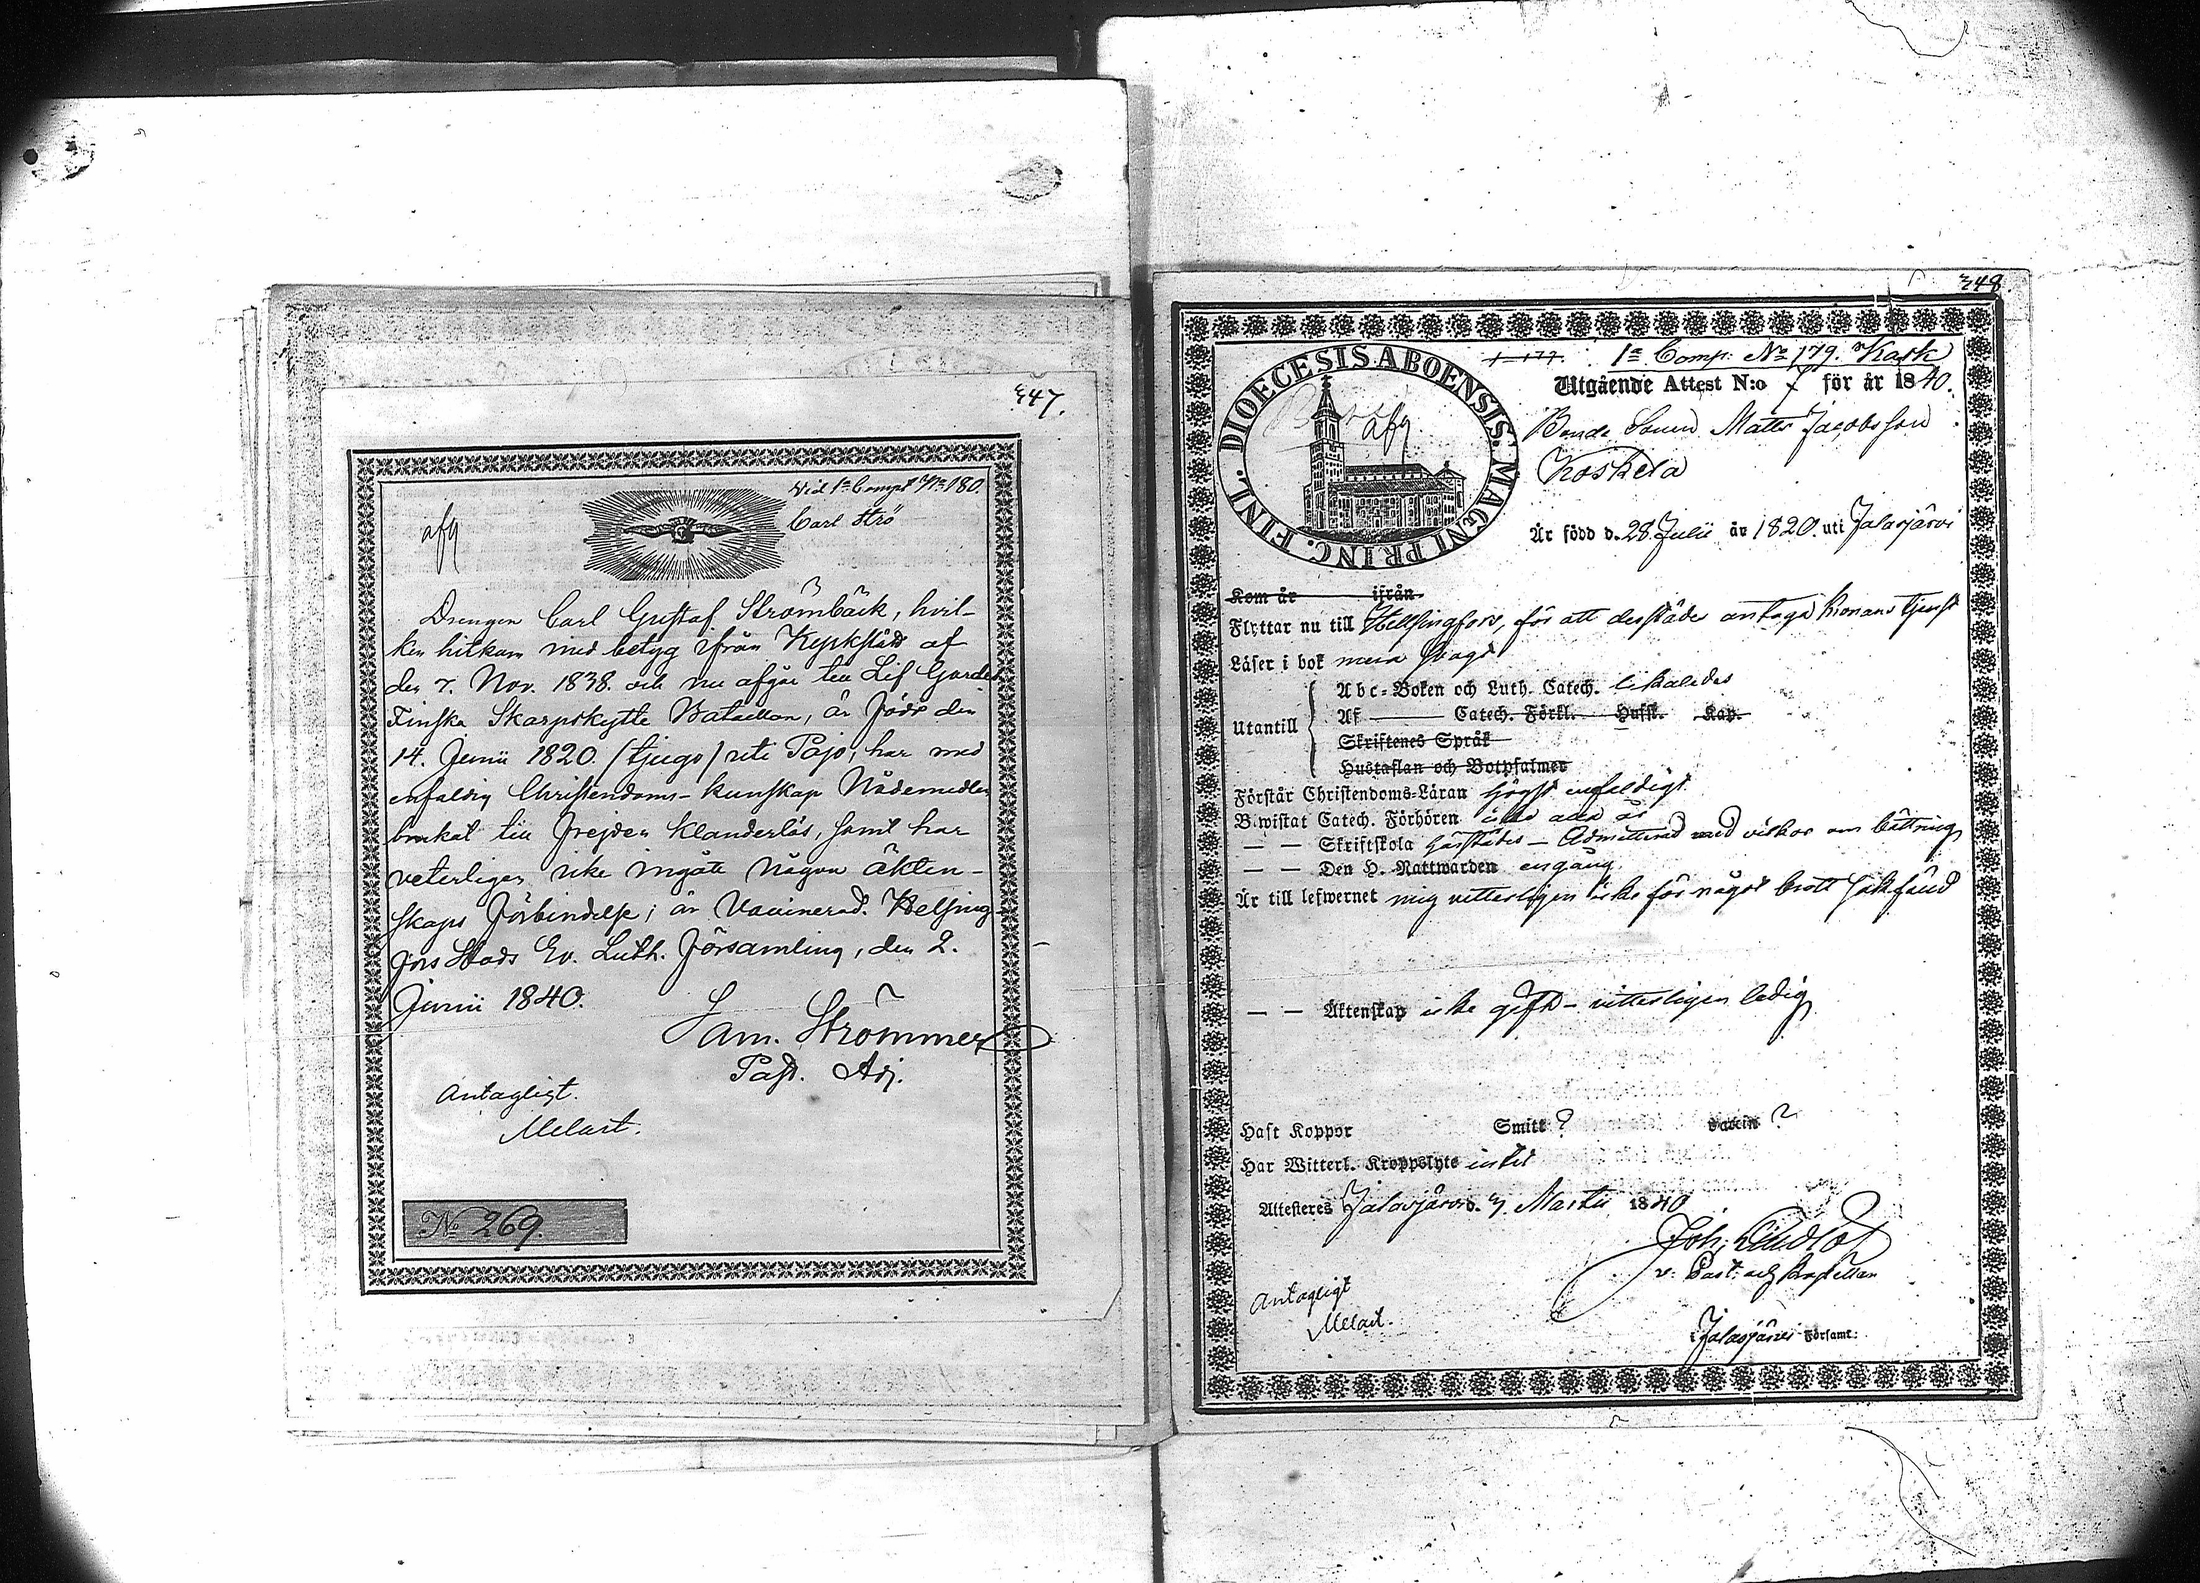 347.
Vid 1ª Comp.t No 180.
Carl Strö
afg
Drengen Carl Gustaf Strömbäck, hvil-
ken hitkom med betyg ifrån Kyrkslätt af
den 7. Nov. 1838. och nu afgår till Lif Gardes
Finska Skarpskytte Bataillon, är född den
14. Junii 1820. (tjugo) uti Pojo, har med
enfaldig Christendoms-kunskap Nådemedlen
brukat till frejden klanderlös, samt har
veterligen icke ingått någon äkten-
skaps förbindelse; är Vaccinerad. Helsing-
fors Stads Ev. Luth. Församling, den 2.
Junii 1840.
Sam. Strömmer
Past. Adj.
Antagligt.
Melart.
No 269.
348.
1 177. 1e Comp. No 179. Kask
Utgående Attest N:o för år 1840.
DIOECESIS ABOENSIS. MAGNI PRINC. FINL.
afg
Bonde Sonen Matts Jacobsson
Koskela
Är född d. 28 Julii år 1820. uti Jalasjärvi
Kom år ifrån
Flyttar nu till Helsingfors, för att derstädes antaga kronans tjenst
Läser i bok mera svagt
Utantill
Abc-Boken och Luth. Catech. likaledes
Af Catech. Förkl. Hufsk. Kap.
Skriftenes Språk
Hustaflan och Botpsalmer
Förstår Christendoms-Läran högst enfaldigt
Bewistat Catech. Förhören icke alla år
— — Skriftskola härstädes — Admitterad med vilkor om bättring
— — Den H. Nattwarden en gång
Är till lefwernet mig vitterligen icke för något brott sakfäld
— — Äktenskap icke gift — vitterligen ledig
Haft Koppor Smitt ? Vaccin ?
Har Witterl. Kroppslyte intet
Attesteres Jalasjärvi d. 7. Martii 1840
v. Past. och kapellan
i Jalasjärvi Församl:
Antagligt
Melart.